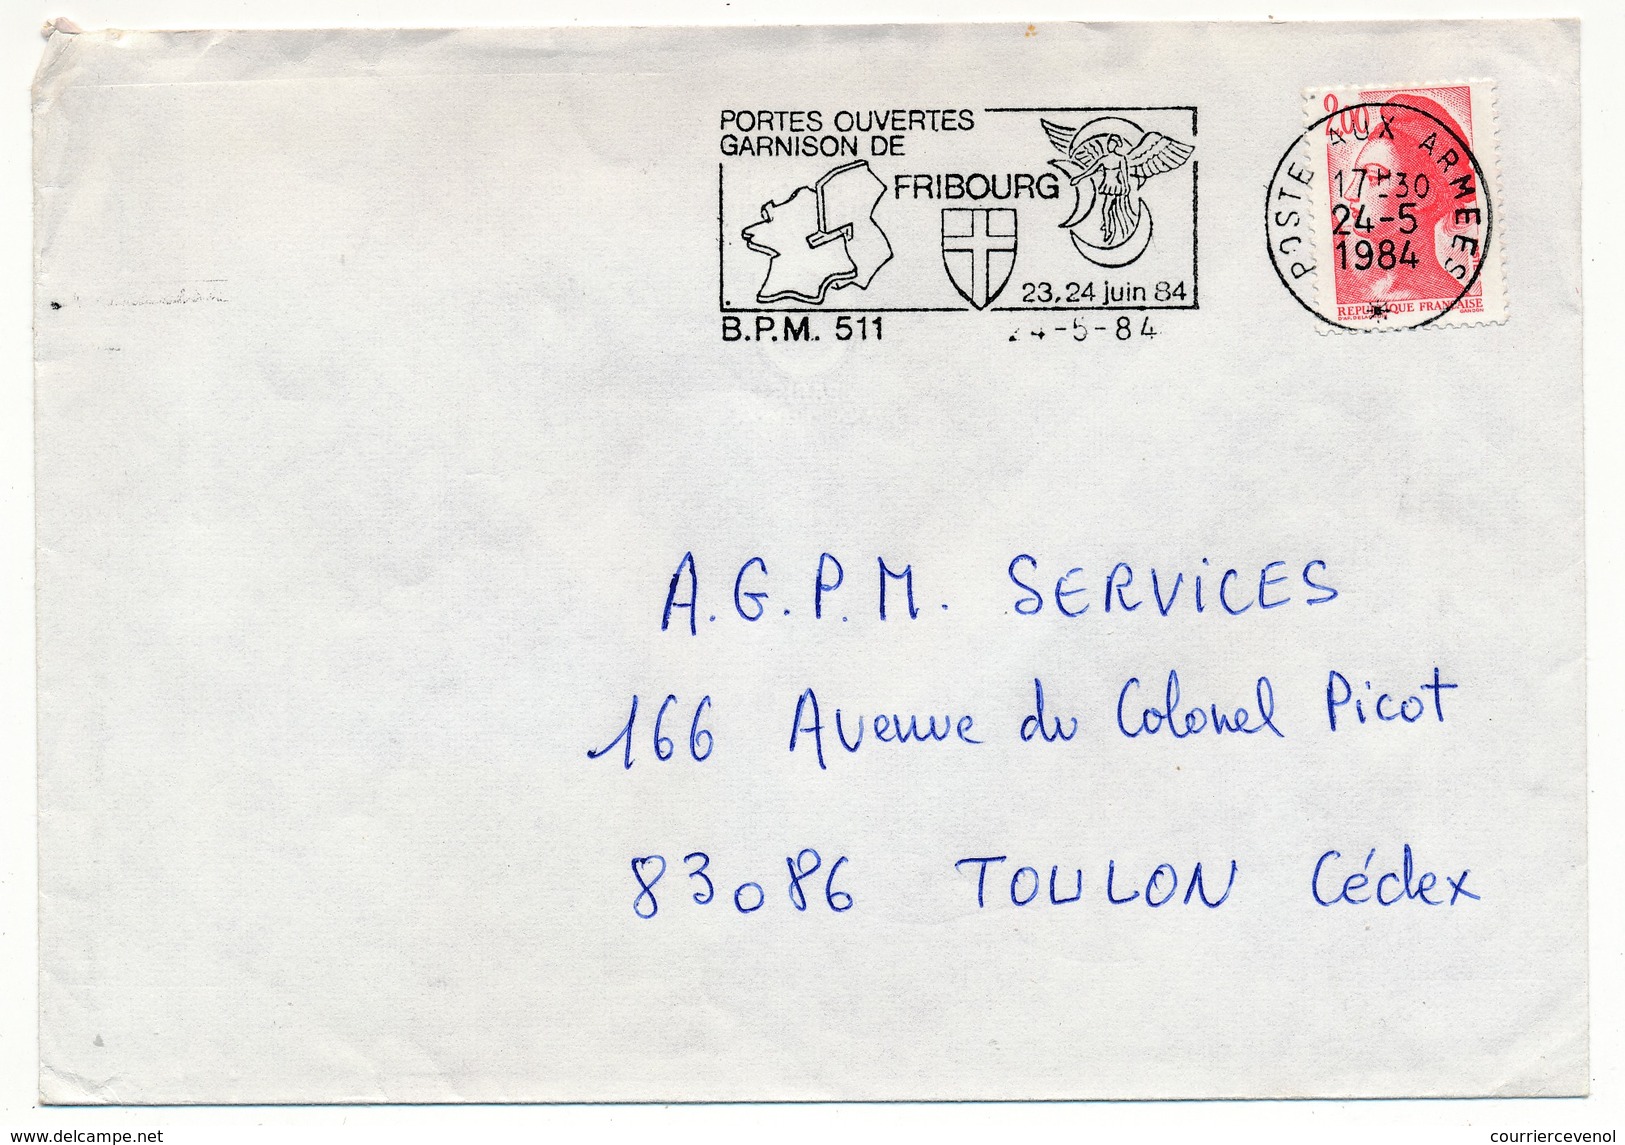 PORTES OUVERTES
GARNISON DE
FRIBOURG
23,24 juin 84
B.P.M. 511
24-5-84
2,00
POSTE AUX ARMEES
17H30
24-5
1984
REPUBLIQUE FRANÇAISE
GANDON
A.G.P.M. SERVICES
166 Avenue du Colonel Picot
83086 TOULON Cédex
delcampe.net
courriercevenol